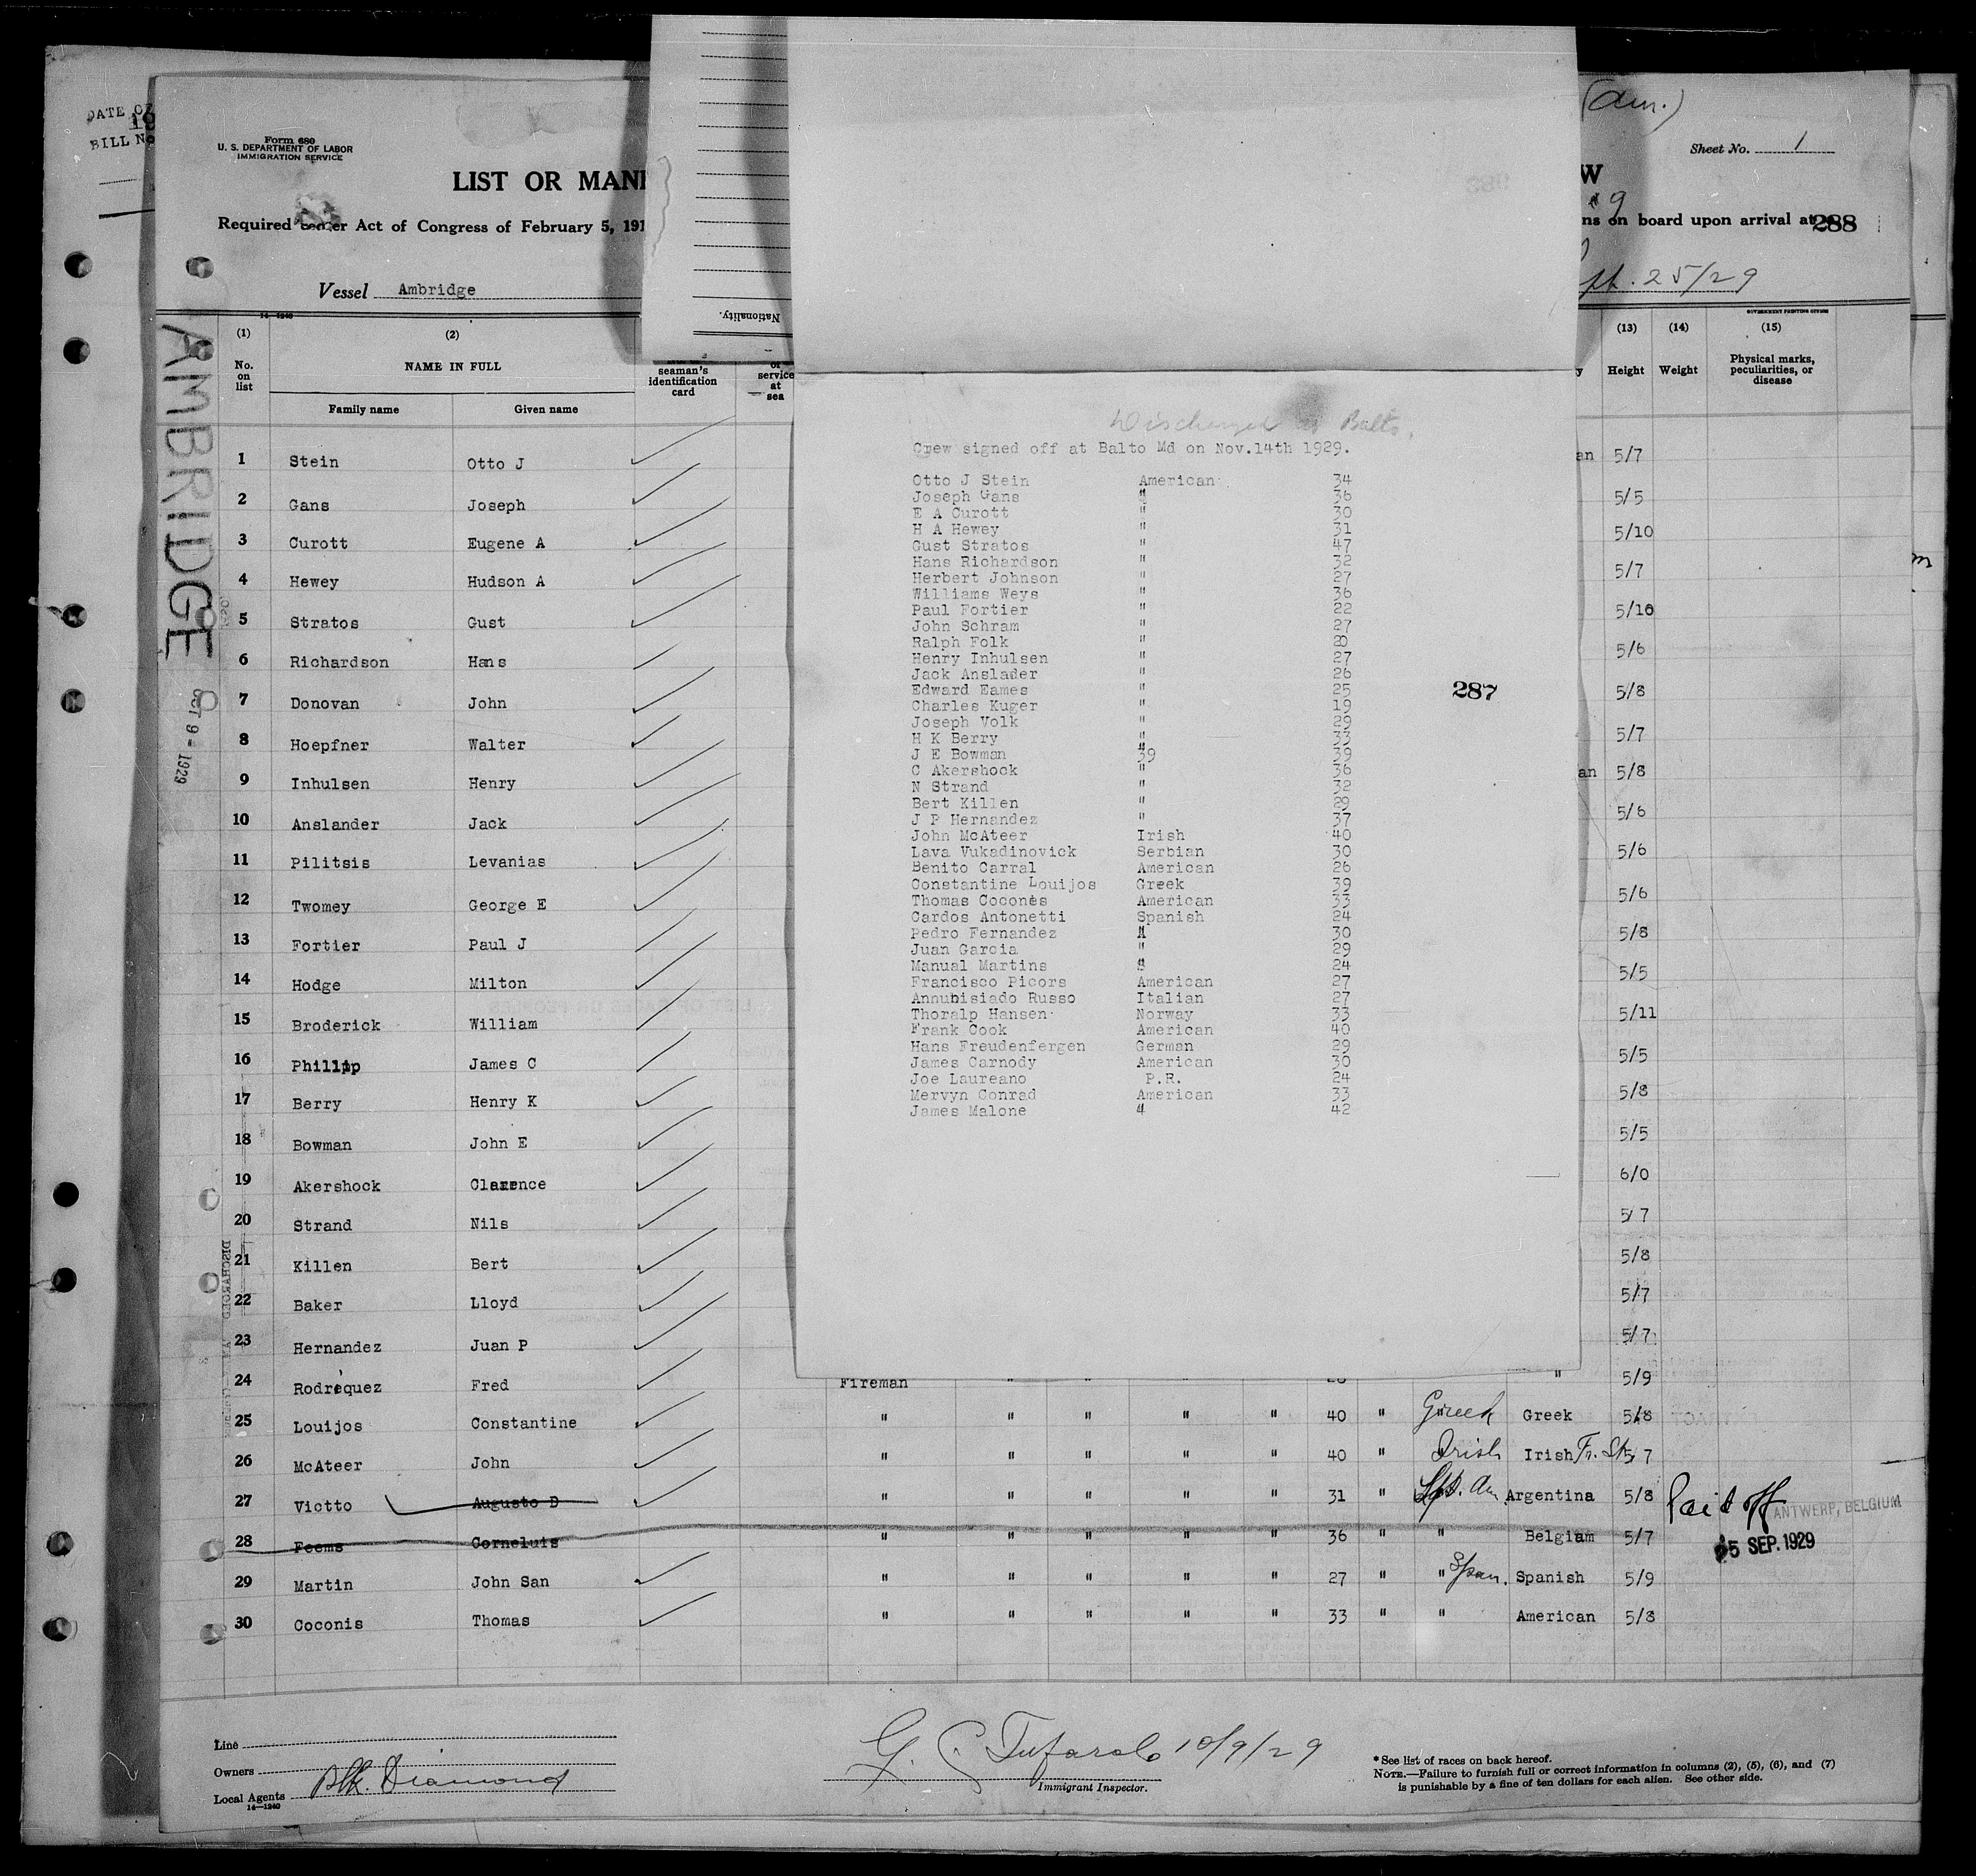 DATE OF
BILL No
Form 680
U. S. DEPARTMENT OF LABOR
IMMIGRATION SERVICE
(Am.)
Sheet No. 1
LIST OR MANI
W
Required under Act of Congress of February 5, 191
ns on board upon arrival at
288
Vessel Ambridge
pt. 25/29
Nationality.
AMBRIDGE
OCT 9 - 1929
(1) (2) (13) (14) (15)
No. on list
NAME IN FULL
Family name Given name
seaman's identification card
of service at sea
Height Weight
Physical marks, peculiarities, or disease
Discharged at Balto.
Crew signed off at Balto Md on Nov.14th 1929.
Otto J Stein American 34
Joseph Gans " 36
E A Curott " 30
H A Hewey " 31
Gust Stratos " 47
Hans Richardson " 32
Herbert Johnson " 27
Williams Weys " 36
Paul Fortier " 22
John Schram " 27
Ralph Folk " 20
Henry Inhulsen " 27
Jack Anslader " 26
Edward Eames " 25
287
Charles Kuger " 19
Joseph Volk " 29
H K Berry " 33
J E Bowman 39 39
C Akershock " 36
N Strand " 32
Bert Killen " 29
J P Hernandez " 37
John McAteer Irish 40
Lava Vukadinovick Serbian 30
Benito Carral American 26
Constantine Louijos Greek 39
Thomas Cocones American 33
Cardos Antonetti Spanish 24
Pedro Fernandez " 30
Juan Garcia " 29
Manual Martins " 24
Francisco Picors American 27
Annubisiado Russo Italian 27
Thoralp Hansen Norway 33
Frank Cook American 40
Hans Freudenfergen German 29
James Carnody American 30
Joe Laureano P.R. 24
Mervyn Conrad American 33
James Malone " 42
1 Stein Otto J an 5/7
2 Gans Joseph 5/5
3 Curott Eugene A 5/10
4 Hewey Hudson A 5/7
5 Stratos Gust 5/10
6 Richardson Hans 5/6
7 Donovan John 5/8
8 Hoepfner Walter 5/7
9 Inhulsen Henry an 5/8
10 Anslander Jack 5/6
11 Pilitsis Levanias 5/6
12 Twomey George E 5/6
13 Fortier Paul J 5/8
14 Hodge Milton 5/5
15 Broderick William 5/11
16 Phillip James C 5/5
17 Berry Henry K 5/8
18 Bowman John E 5/5
19 Akershock Clarence 6/0
20 Strand Nils 5/7
21 Killen Bert 5/8
22 Baker Lloyd 5/7
23 Hernandez Juan P 5/7
24 Rodrequez Fred Fireman " " " " " 5/9
25 Louijos Constantine " " " " " 40 " Greek Greek 5/8
26 McAteer John " " " " " 40 " Irish Irish 5/7
27 Victto Augusto D " " " " " 31 " Am. Argentina 5/8
Paid off ANTWERP, BELGIUM
28 Feems Corneluis " " " " " 36 " " Belgiam 5/7
25 SEP. 1929
29 Martin John San " " " " " 27 " " Span. Spanish 5/9
30 Coconis Thomas " " " " " 33 " " American 5/8
Line
Owners
Local Agents Blk. Diamond
14—1240
G. C. Tufarolo 10/9/29
Immigrant Inspector.
* See list of races on back hereof.
NOTE.—Failure to furnish full or correct information in columns (2), (5), (6), and (7)
is punishable by a fine of ten dollars for each alien. See other side.